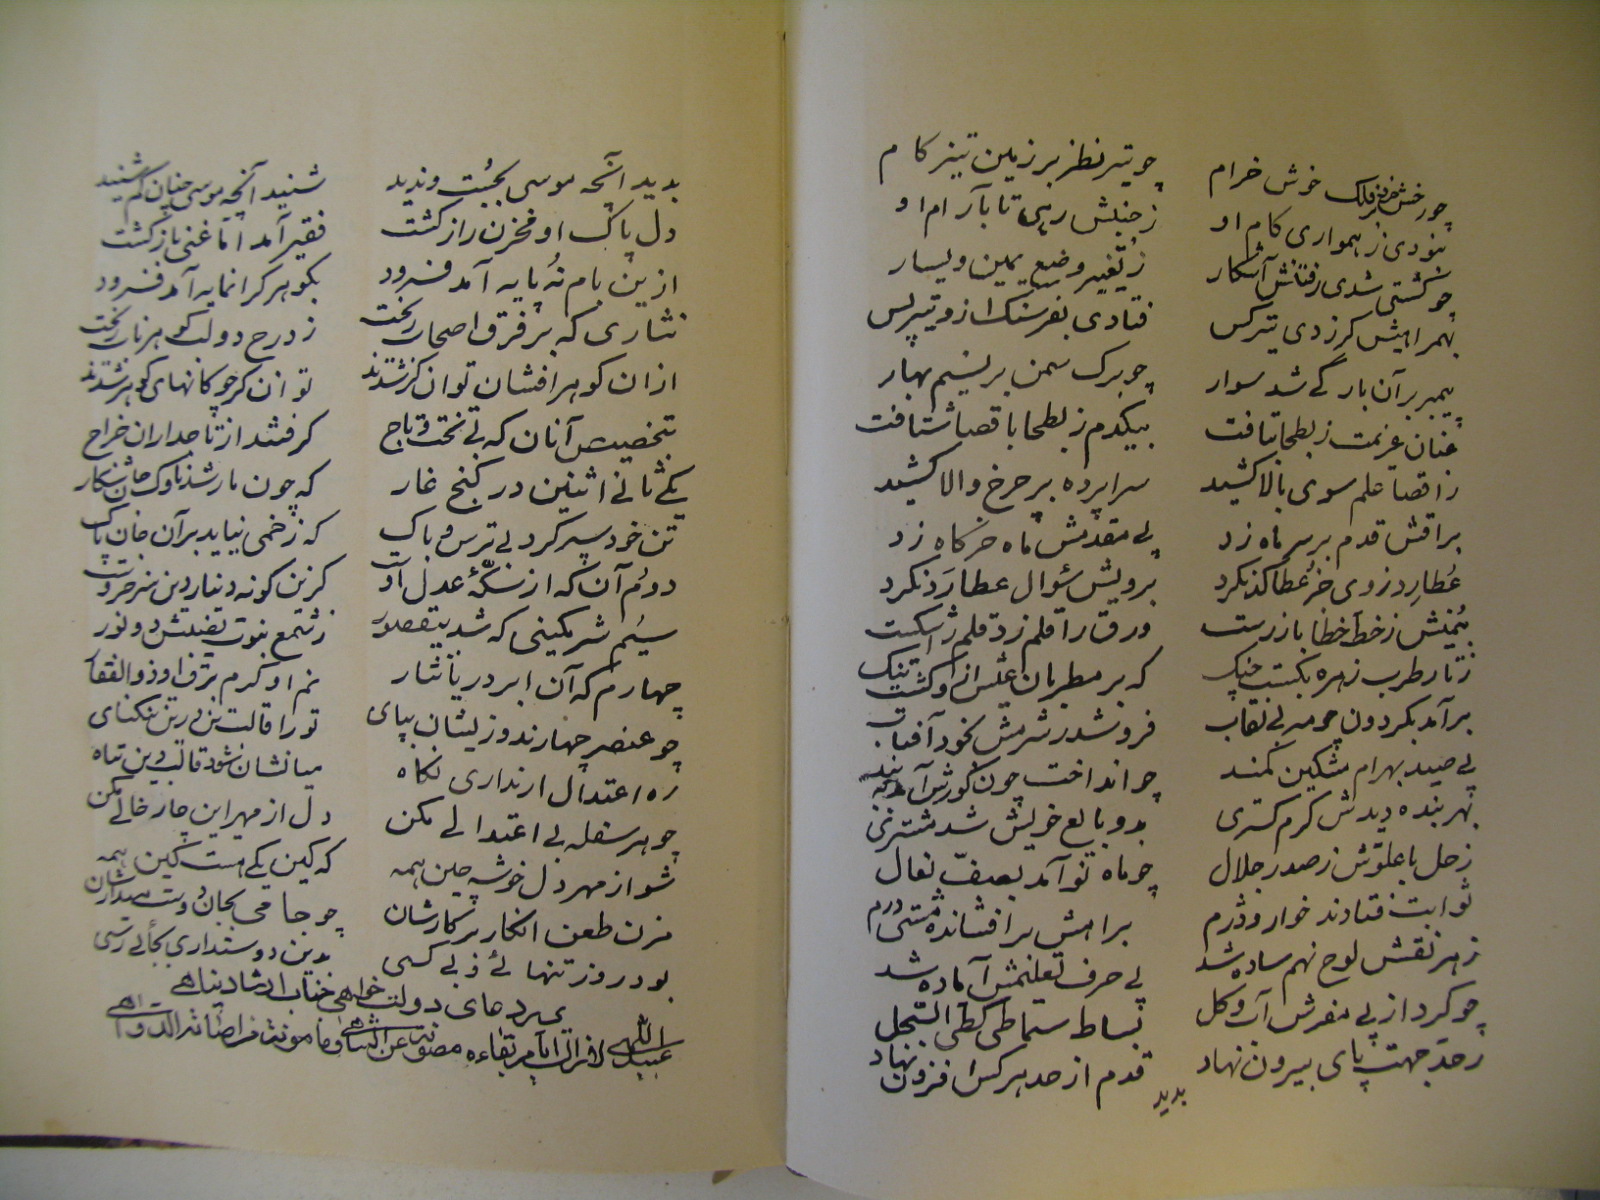 چو رخش خرد بر فلک خوش خرام چو تیر نظر بر زمین تیز کام
نبودی ز همواری کام او ز جنبش رهی تا بآرام او
چو گشتی شدی رفتنش آشکار ز تغییر وضع یمین و یسار
بهمراهیش گر زدی تیر کس فتادی بفرسنگ ازو تیر پس
پیمبر بر آن بارگی شد سوار چو برک سمن بر نسیم بهار
عنان عزیمت ز بطحا بتافت بیکدم ز بطحا باقصا شتافت
ز اقصا علم سوی بالا کشید سراپرده بر چرخ والا کشید
براقش قدم بر سر ماه زد پی مقدمش ماه خرگاه زد
عطارد ز وی جز عطا کد نکرد برویش سؤال عطا رد نکرد
بیمنش ز خط خطا باز رست ورق را قلم زد قلم را شکست
ز تار طرب زهره بگسست چنگ که بر مطربان عیش ازو گشت تنگ
برآمد بگردون چو مه بی نقاب فرو شد ز شرمش بخود آفتاب
پی صید بهرام مشکین کمند چو انداخت چون گورش آمد ببند
بهر بنده دیدش کرم گستری بدو بایع خویش شد مشتری
زحل با علوش ز صدر جلال چو ماه نو آمد بصف نعال
ثوابت فتادند خوار و دژم براهش بر افشانده مشتی درم
ز هر نقش لوح نهم ساده شد پی حرف تعلیمش آماده شد
چو کرد از پی مفرش آب و گل بساط سماطی کطی السجل
ز حد جهت پای بیرون نهاد قدم از حد هر کس افزون نهاد
بدید
بدید آنچه موسی بجست و ندید شنید آنچه موسی چنان کم شنید
دل پاک او مخزن راز گشت فقیر آمد اما غنی باز گشت
ازین بام نه پایه آمد فرود بگوهر گرانمایه آمد فرود
نثاری که بر فرق اصحاب ریخت ز درج دولب گوهر ناب ریخت
ازان گوهر افشان توانگر شدند توانگر چو کانهای گوهر شدند
بتخصیص آنان که بی تخت و تاج گرفتند از تاجداران خراج
یکی ثانی اثنین در کنج غار که چون مار شد ناوک جان شکار
تن خود سپر کرد بی ترس و باک که زخمی نیاید بر آن جان پاک
دوم آن که از سکه عدل اوست کزین گونه دینار دین سرخ روست
سیم شرمگینی که شد بی قصور ز شمع نبوت نصیبش دو نور
چهارم که آن ابر دریا نثار نم او کرم برق او ذوالفقار
چو عنصر چهارند و زیشان بپای تو را قالب دین درین تنگنای
ره اعتدال ار نداری نگاه میانشان شود قالب دین تباه
چو هر سفله بی اعتدالی مکن دل از مهر این چار خالی مکن
شو از مهر دل خوشه چین همه که کین یکی هست کین همه
مزن طعن انکار بر کارشان چو جامی بجان دوست میدارشان
بود روز تنهائی و بی کسی بدین دوستداری بجائی رسی